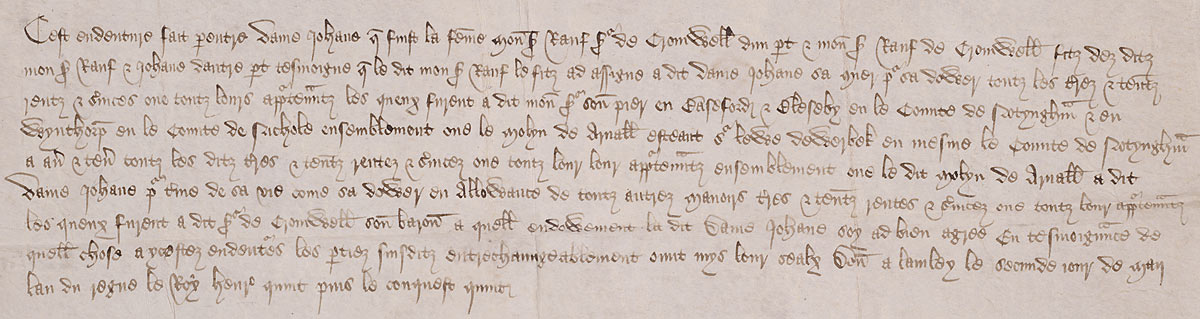 Cest endenture fait parentre dame Johane qe fuist la feme monsr Rauf sr de Cromwell dun part & monsr Rauf de Cromwell fitz dez ditz
monsr Rauf & Johane dautre part tesmoigne qe le dit monsr Rauf le fitz ad assigne a dit dame Johane sa mier pr sa dower toutz les terez & tentz
rentz & svices oue toutz lours apptenantz les queux furent a dit monsr son pier en Baseford & Cleseby en le Comite de Notynghm & en
Wynthorp en le Comite de Nichole ensemblement oue le molyn de Arnall esteant sr lewe dowerbek en mesme le Comite de Notynghm
a av & ten toutz les ditz tres & tentz rentez & svicez oue toutz lour lour apptenantz ensemblement oue le dit molyn de Arnall a dit
dame Johane pr tme de sa vie come sa dower en allowance de toutz autrez manoirs tres & tentz rentes & svicez oue toutz lour apptenantz
les queux furent a dit sr de Cromwell son baron a quell endowement la dit dame Johane soy ad bien agree En tesmoignance de
quell chose a ycestez endentres les partiez susditz entrechaungeablement ount mys lour sealx Don a lamley le secunde iour de maii
lan du regne le Roy Henr quint puis le conquest quint